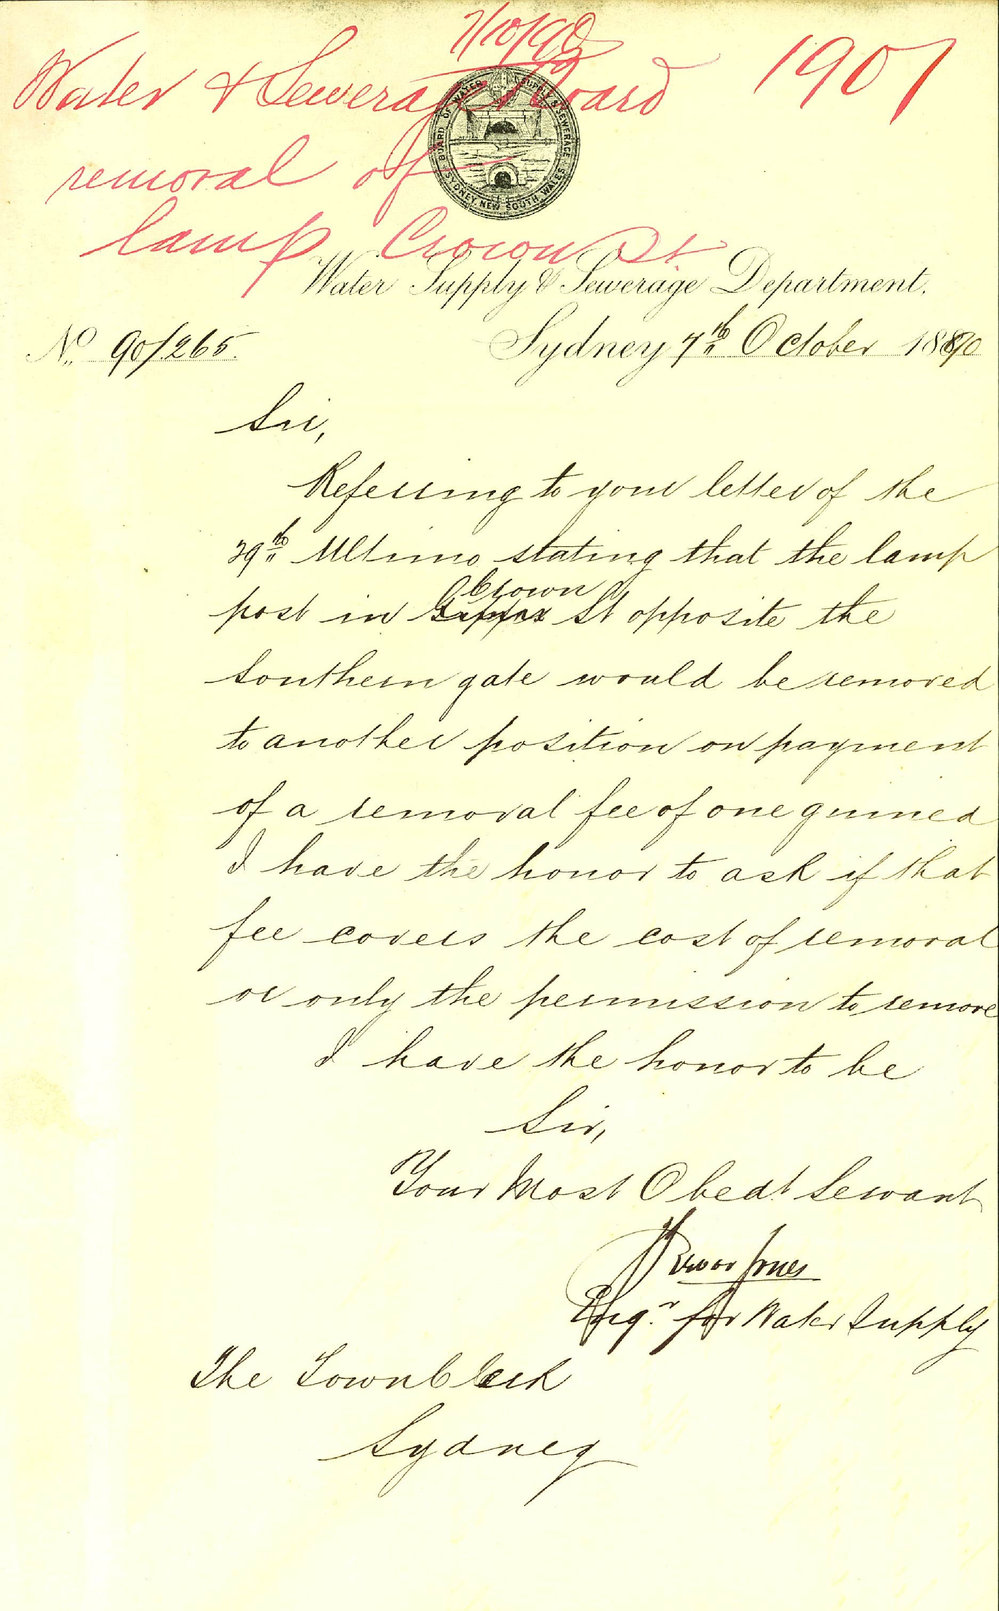 7/10/90
Water & Sewerage Board 1901
removal of
lamp Crown St
BOARD OF WATER SUPPLY & SEWERAGE
SYDNEY, NEW SOUTH WALES
Water Supply & Sewerage Department.
No. 90/265. Sydney 7th October 1890
Sir,
Referring to your letter of the
29th Ultimo stating that the lamp
Crown
post in St opposite the
southern gate would be removed
to another position on payment
of a removal fee of one guinea
I have the honor to ask if that
fee covers the cost of removal
or only the permission to remove
I have the honor to be
Sir,
Your Most Obedt Servant
Trevor Jones
Engr. for Water Supply
The Town Clerk
Sydney